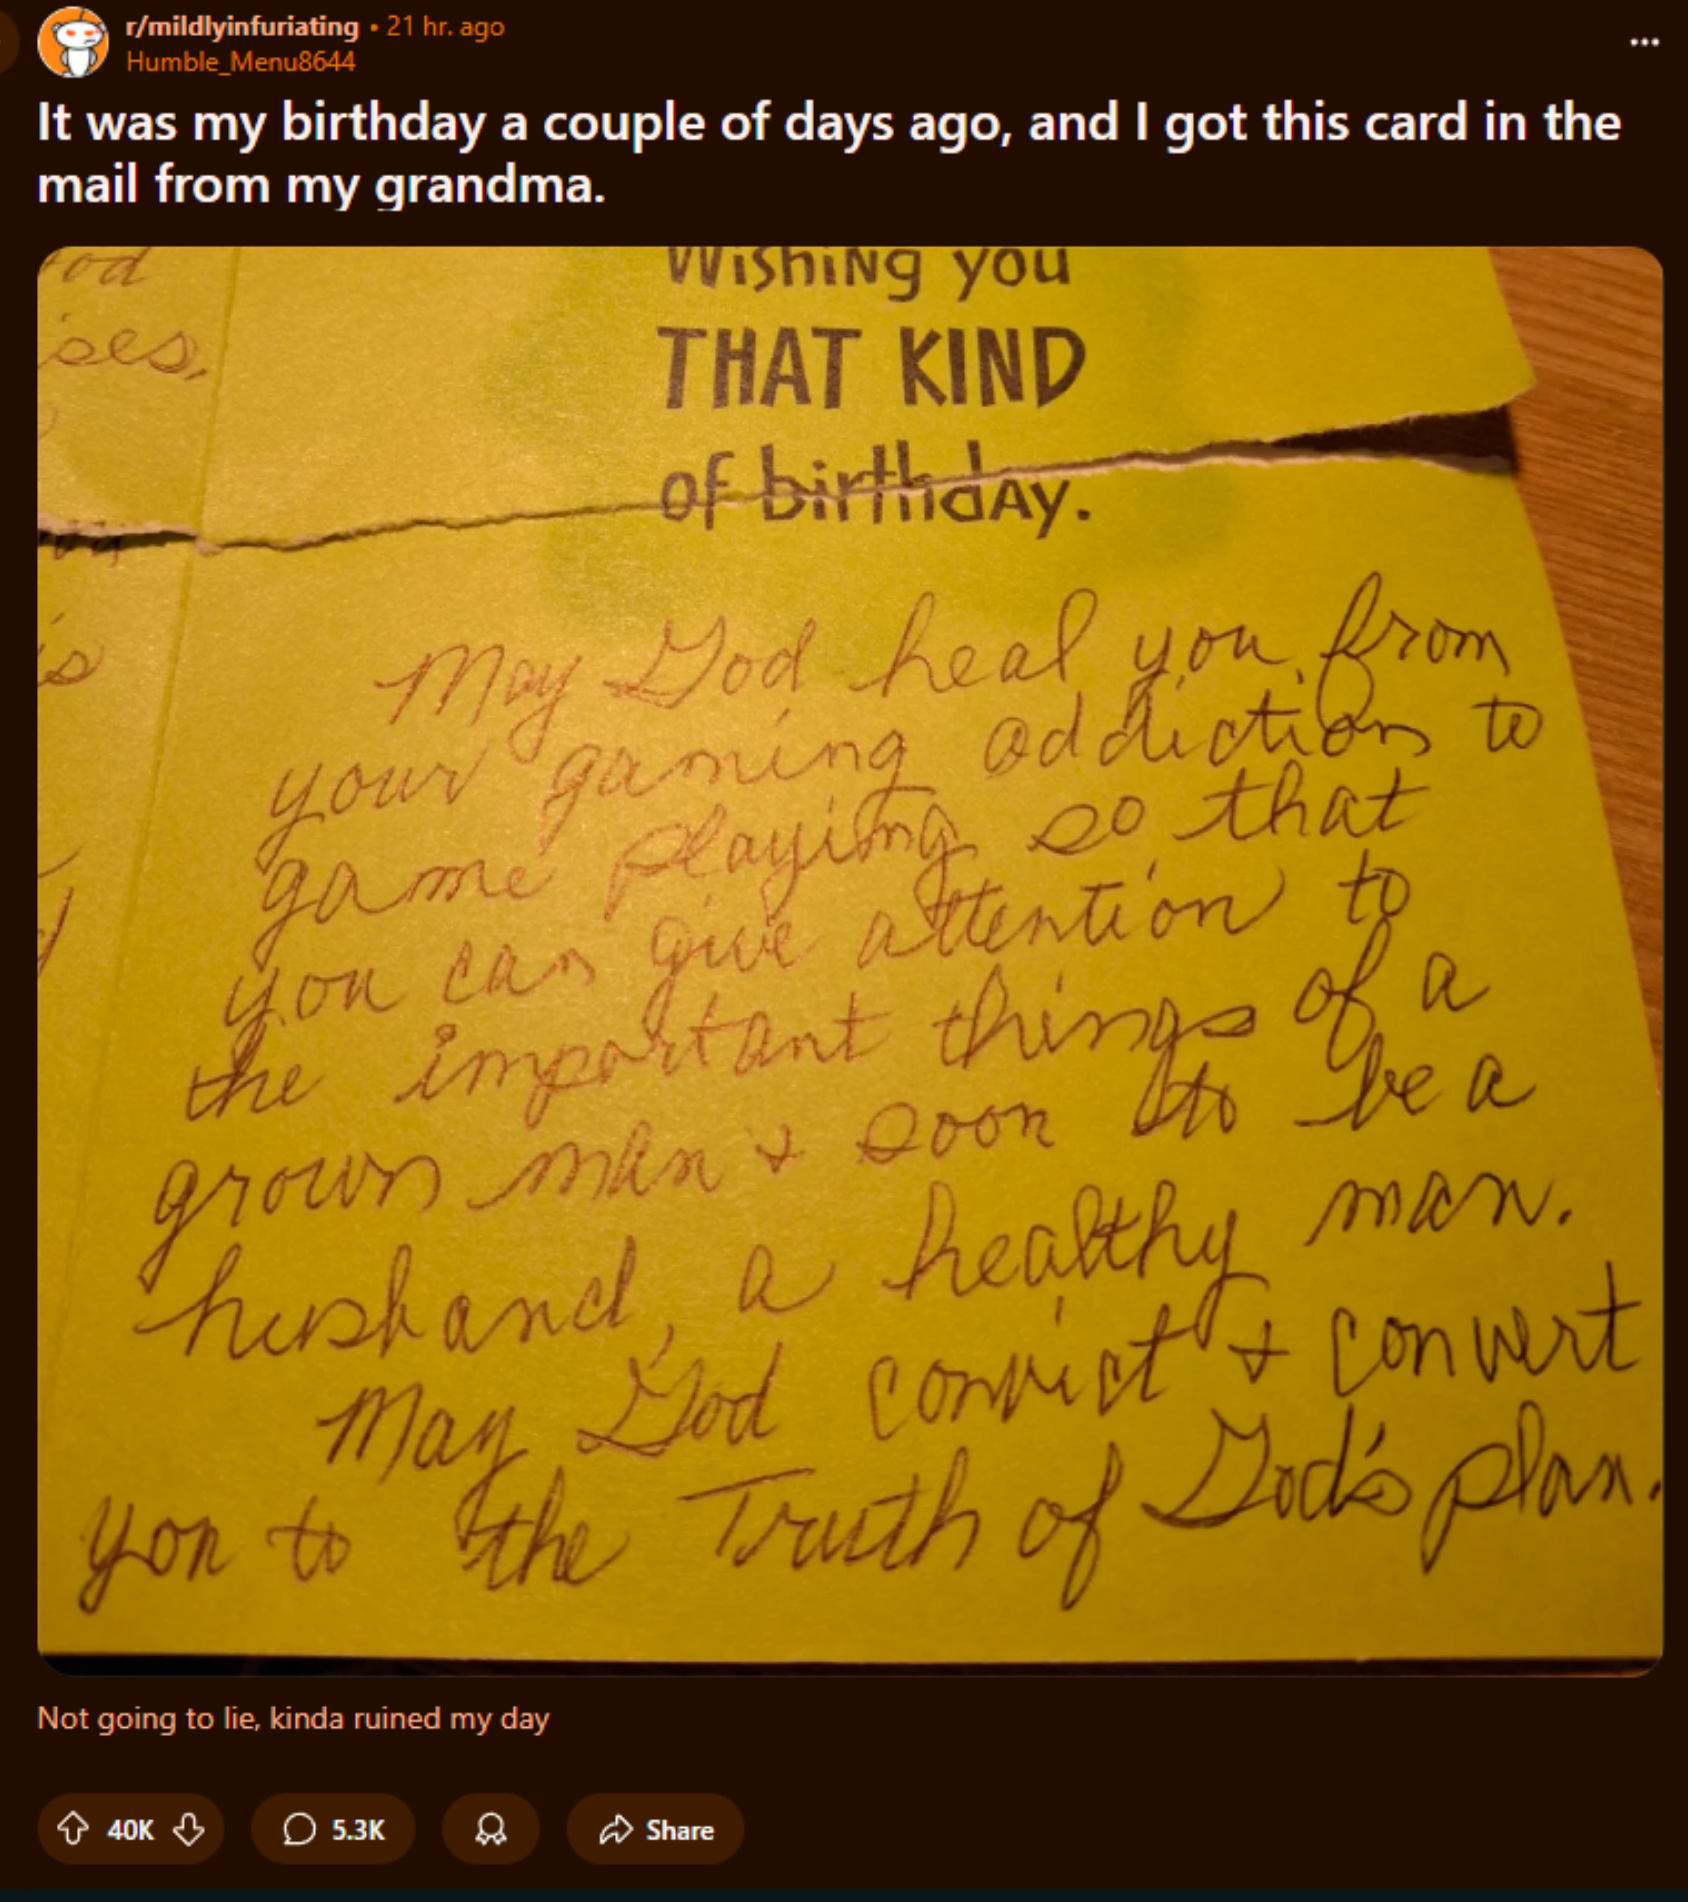 r/mildlyinfuriating • 21 hr. ago
Humble_Menu8644
It was my birthday a couple of days ago, and I got this card in the
mail from my grandma.
od
ses,
is
Wishing you
THAT KIND
of birthday.
May God heal you from
your gaming addiction to
game playing so that
you can give attention to
the important things of a
grown man & soon to be a
husband, a healthy man.
May God convict & convert
you to the Truth of God's plan.
Not going to lie, kinda ruined my day
40K 5.3K Share